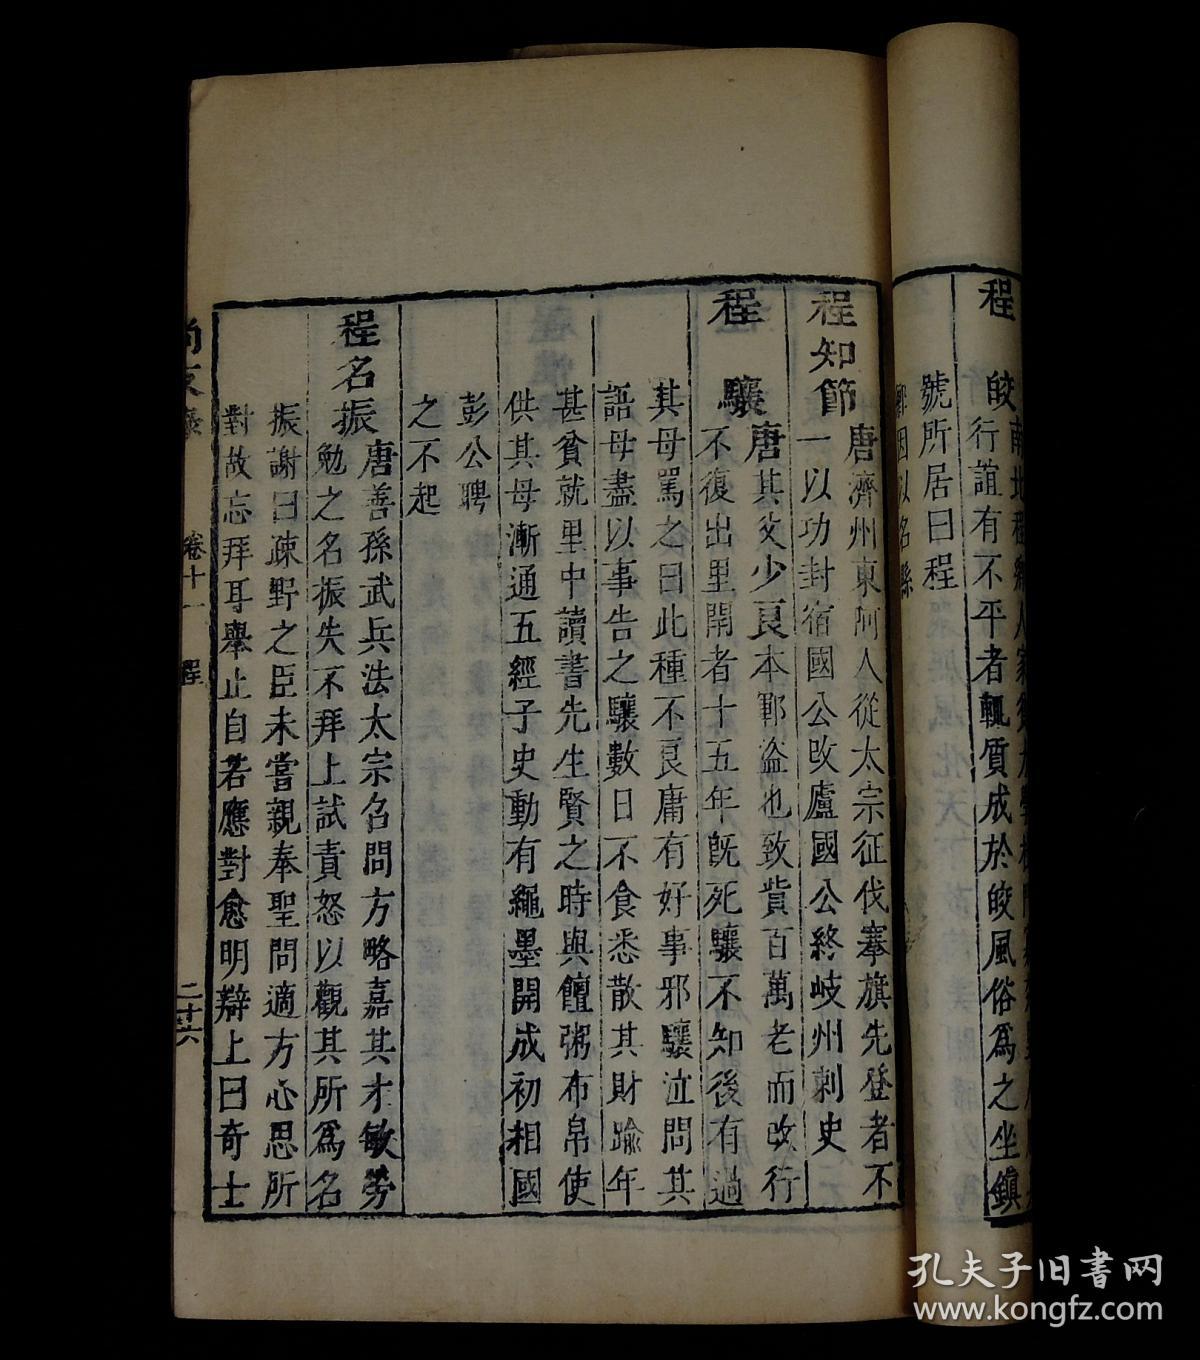 程
皎
行誼有不平者輒質成於皎風俗爲之坐鎮
號所居曰程
鄉因以名縣
程知節
唐濟州東阿人從太宗征伐搴旗先登者不
一以功封宿國公改盧國公終岐州刺史
程驤
唐其父少良本鄆盗也致貲百萬老而改行
不復出里閈者十五年旣死驤不知後有過
其母罵之曰此種不良庸有好事邪驤泣問其
語母盡以事告之驤數日不食悉散其財踰年
甚貧就里中讀書先生賢之時與饘粥布帛使
供其母漸通五經子史動有繩墨開成初相國
彭公聘
之不起
程名振
唐善孫武兵法太宗召問方略嘉其才敏勞
勉之名振失不拜上試責怒以觀其所爲名
振謝曰疎野之臣未嘗親奉聖問適方心思所
對故忘拜耳舉止自若應對愈明辯上曰奇士
尚友錄
卷十一
程
二十六
孔夫子旧书网
www.kongfz.com